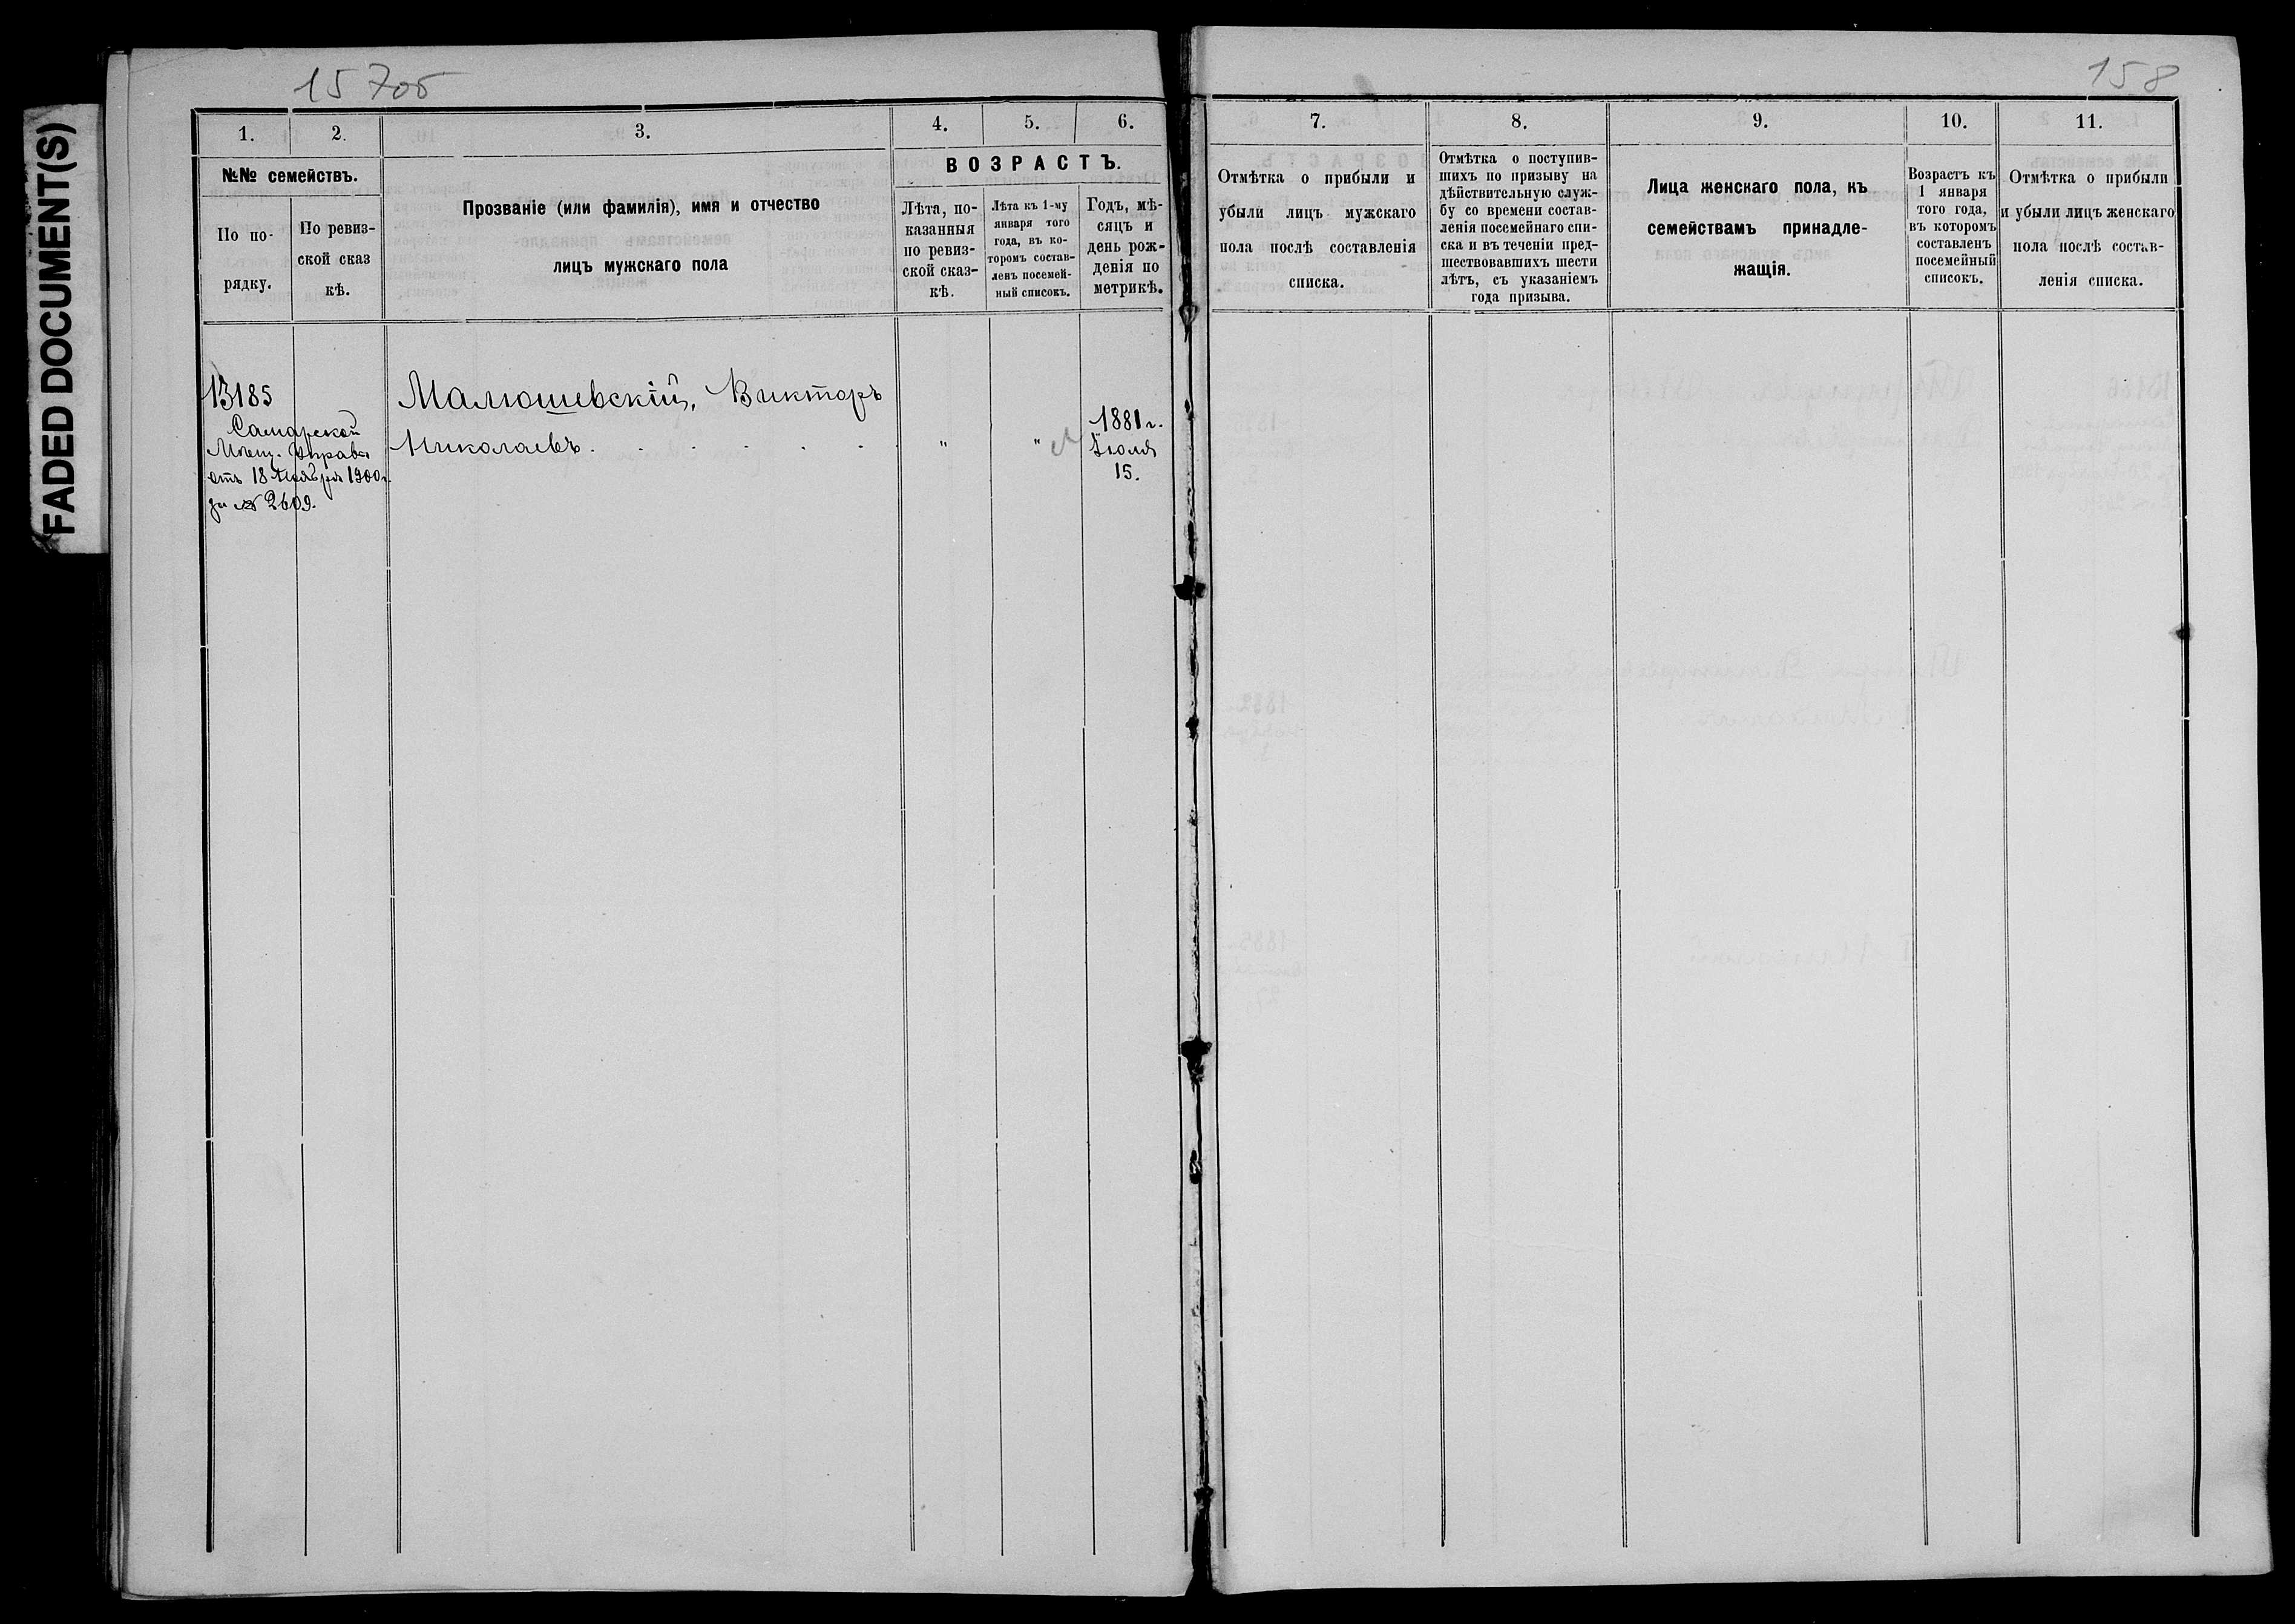 FADED DOCUMENT(S)
157об
1.
2.
3.
4.
5.
6.
№№ семействъ.
По по-
рядку.
По ревиз-
ской сказ
кѣ.
Прозваніе (или фамилія), имя и отчество
лицъ мужскаго пола
ВОЗРАСТЪ.
Лѣта, по-
казанныя
по ревиз-
ской сказ-
кѣ.
Лѣта къ 1-му
января того
года, въ ко-
торомъ состав-
ленъ посемей-
ный списокъ.
Годъ, мѣ-
сяцъ и
день рож-
денія по
метрикѣ.
13185
Самарской
Мѣщ. Управы
отъ 18 Ноября 1900 г.
за № 2609.
Малюшевскій, Викторъ
Николаевъ . . . . .
"
"
1881 г.
Іюля
15.
158
7.
8.
9.
10.
11.
Отмѣтка о прибыли и
убыли лицъ мужскаго
пола послѣ составленія
списка.
Отмѣтка о поступив-
шихъ по призыву на
дѣйствительную служ-
бу со времени состав-
ленія посемейнаго спи-
ска и въ теченіи пред-
шествовавшихъ шести
лѣтъ, съ указаніемъ
года призыва.
Лица женскаго пола, къ
семействамъ принадле-
жащія.
Возрастъ къ
1 января
того года,
въ которомъ
составленъ
посемейный
списокъ.
Отмѣтка о прибыли
и убыли лицъ женскаго
пола послѣ состав-
ленія списка.